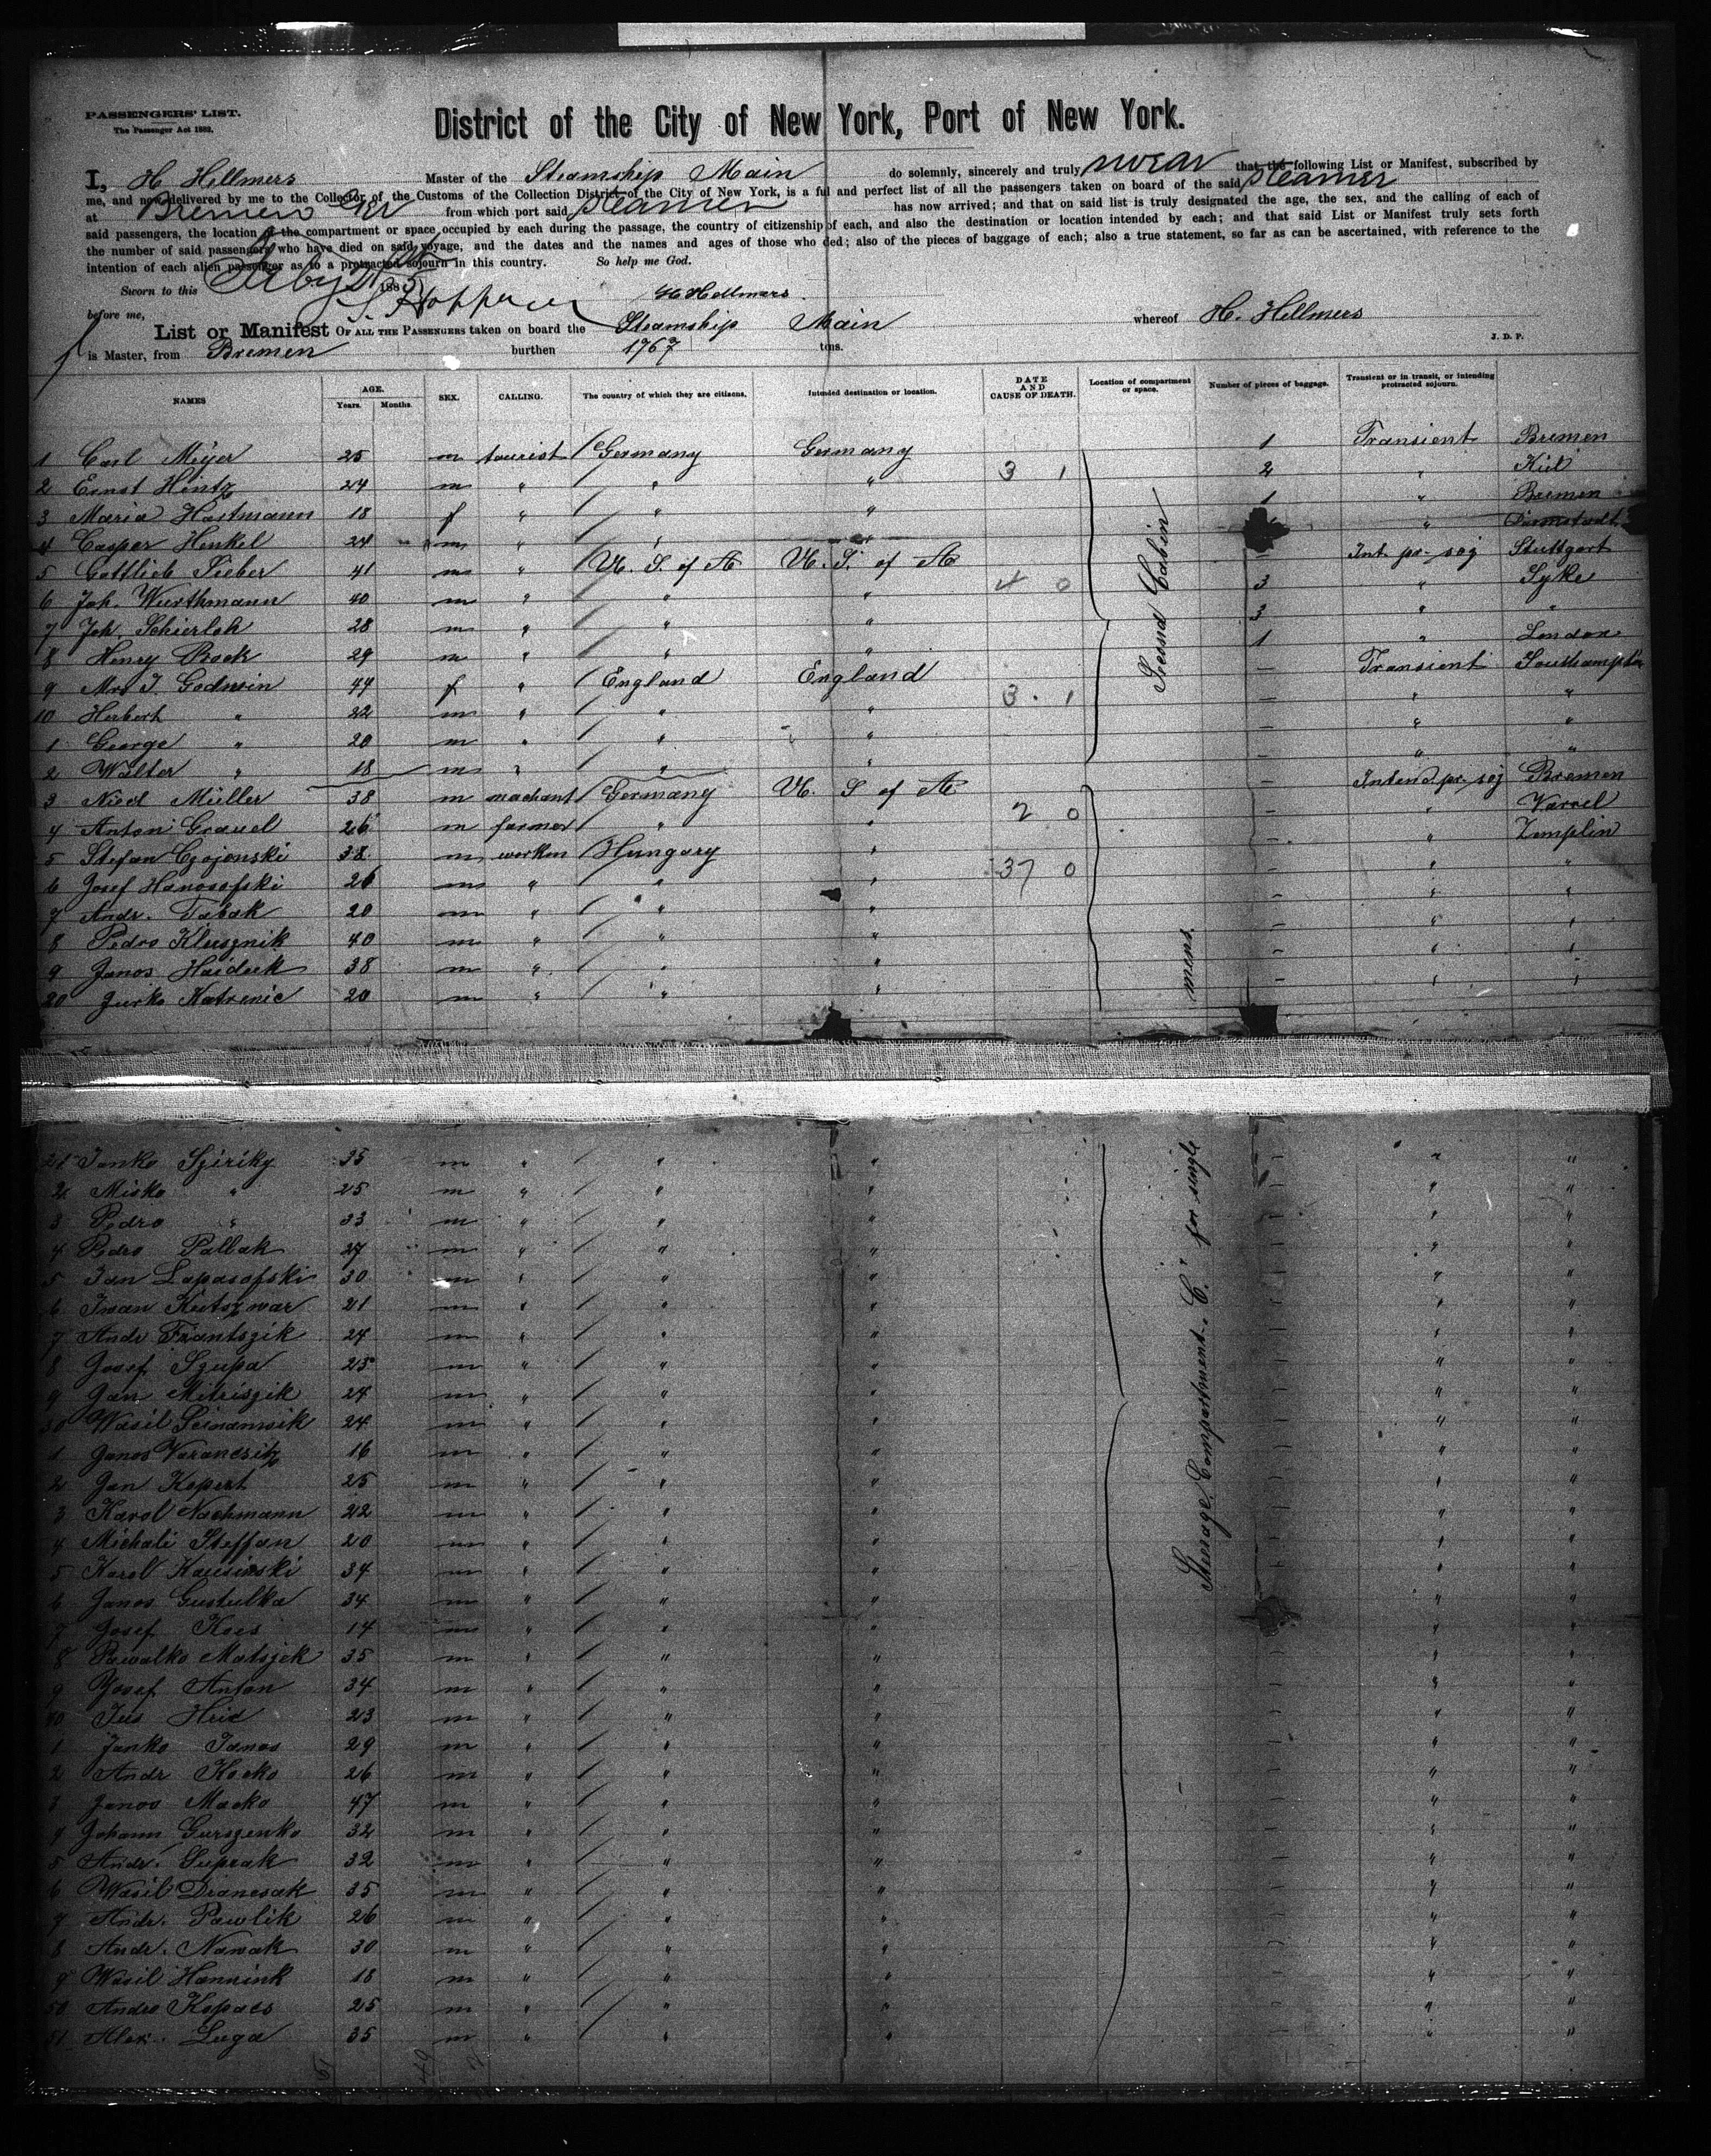 PASSENGERS' LIST.
The Passenger Act 1882.
District of the City of New York, Port of New York.
I, H. Hellmers Master of the Steamship Main do solemnly, sincerely and truly swear that the following List or Manifest, subscribed by
me, and now delivered by me to the Collector of the Customs of the Collection District of the City of New York, is a full and perfect list of all the passengers taken on board of the said steamer
at Bremen from which port said steamer has now arrived; and that on said list is truly designated the age, the sex, and the calling of each of
said passengers, the location of the compartment or space occupied by each during the passage, the country of citizenship of each, and also the destination or location intended by each; and that said List or Manifest truly sets forth
the number of said passengers who have died on said voyage, and the dates and the names and ages of those who died; also of the pieces of baggage of each; also a true statement, so far as can be ascertained, with reference to the
intention of each alien passenger as to a protracted sojourn in this country. So help me God.
Sworn to this 188
before me, H Hellmers.
List or Manifest OF ALL THE PASSENGERS taken on board the Steamship Main whereof H. Hellmers
is Master, from Bremen burthen 1767 tons. J. D. P.
NAMES AGE. Years. Months. SEX. CALLING. The country of which they are citizens. Intended destination or location. DATE AND CAUSE OF DEATH. Location of compartment or space. Number of pieces of baggage. Transient or in transit, or intending protracted sojourn.
1 Carl Meyer 25 m tourist Germany Germany 1 Transient Bremen
2 Ernst Hintz 24 m " " " 3 1 2 " Kiel
3 Maria Hartmann 18 f " " " 1 " Bremen
4 Casper Henkel 24 m " " " " Darmstadt
5 Gottlieb Sieber 41 m " U. S. of A U. S. of A – Int. pr. soj Stuttgart
6 Joh. Wurthmann 40 m " " " 4 0 3 " Syke
7 Joh. Schierloh 28 m " " " 3 " "
8 Henry Bock 29 m " " " 1 " London
9 Mrs J. Godwin 44 f " England England – Transient Southampton
10 Herbert " 22 m " " " 3 . 1 – " "
1 George " 20 m " " " – " "
2 Walter " 18 m " " " – " "
Second Cabin
3 Nicol Müller 38 m machant Germany U. S of A – Intend. pr. soj Bremen
4 Anton Grauel 26 m farmer " " 2 0 – " Varrel
5 Stefan Czojonski 38 m worker Hungary " – " Zemplin
6 Josef Hanosofski 26 m " " " 37 0 – " "
7 Andr. Tabak 20 m " " " – " "
8 Pedro Klusznik 40 m " " " – " "
9 Janos Haiduk 38 m " " " – " "
20 Jurko Katrenic 20 m " " " – " "
mens.
21 Janko Sziriky 35 m " " " – " "
2 Misko " 25 m " " " – " "
3 Pedro " 33 m " " " – " "
4 Pedro Pallak 27 m " " " – " "
5 Jan Lapasofski 30 m " " " – " "
6 Iwan Kutszwar 21 m " " " – " "
7 Andr Frantszik 24 m " " " – " "
8 Josef Szupa 23 m " " " – " "
9 Jan Mitriszik 24 m " " " – " "
30 Wasil 24 m " " " – " "
1 Janos Varancsitz 16 m " " " – " "
2 Jan Kopert 25 m " " " – " "
3 Karol Nachmann 22 m " " " – " "
4 Michali Steffan 20 m " " " – " "
5 Karol Kausinski 34 m " " " – " "
6 Janos Gustulka 34 m " " " – " "
7 Josef Kocs 14 m " " " – " "
8 Pawalko Matszek 35 m " " " – " "
9 Josef Anton 34 m " " " – " "
40 Jus Hric 23 m " " " – " "
1 Janko Janos 29 m " " " – " "
2 Andr Kocko 26 m " " " – " "
3 Janos Macko 47 m " " " – " "
4 Johann Gurszenko 32 m " " " – " "
5 Andr. Suprak 32 m " " " – " "
6 Wasil Diancsak 35 m " " " – " "
7 Andr. Pawlik 26 m " " " – " "
8 Andr. Nawak 30 m " " " – " "
9 Wasil Hannink 18 m " " " – " "
50 Andro Kopacs 25 m " " " – " "
51 Alex. Luga 35 m " " " – " "
Steerage Compartment "C." for single